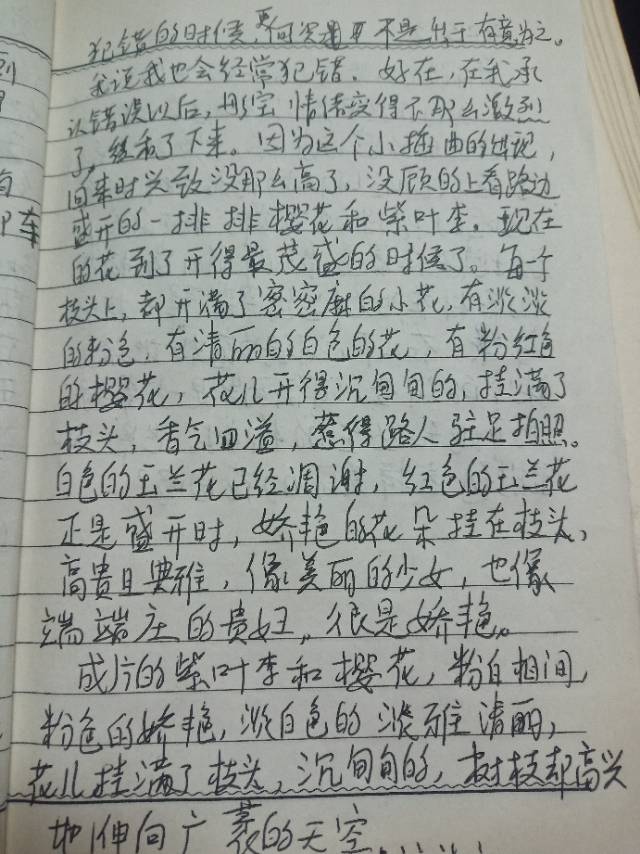 犯错的时候更何况是不是出于有意为之。
我说我也会经常犯错。好在，在我承
认错误以后，彤宝情绪变得不那么激烈
了，缓和了下来。因为这个小插曲的出现，
回来时兴致没那么高了，没顾的上看路边
盛开的一排排樱花和紫叶李。现在
的花到了开得最茂盛的时候了。每一个
枝头上，都开满了密密麻的小花，有淡淡
的粉色，有清丽的白色的花，有粉红色
的樱花，花儿开得沉甸甸的，挂满了
枝头，香气四溢，惹得路人驻足拍照。
白色的玉兰花已经凋谢，红色的玉兰花
正是盛开时，娇艳的花朵挂在枝头，
高贵且典雅，像美丽的少女，也像
端端庄的贵妇，很是娇艳。
成片的紫叶李和樱花，粉白相间，
粉色的娇艳，淡白色的淡雅清丽，
花儿挂满了枝头，沉甸甸的，树枝却高兴
地伸向广袤的天空